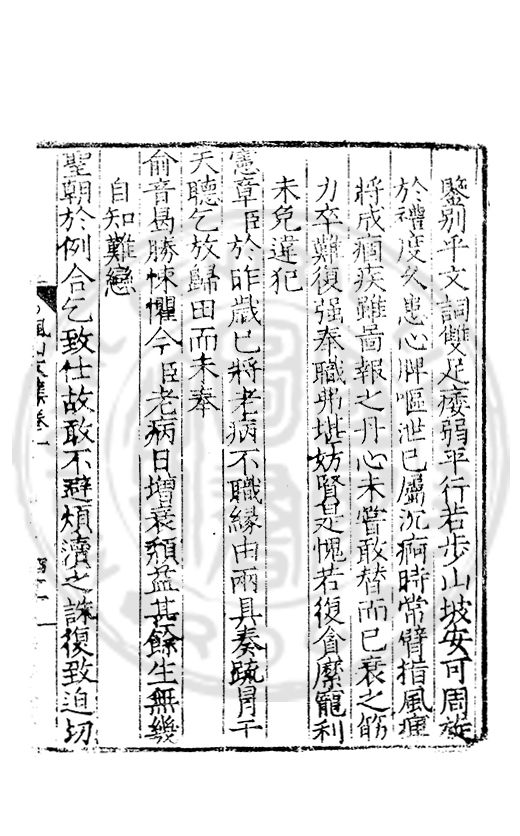 鑒別乎文詞雙足痿弱平行若步山坡安可周旋
於禮度久患心脾嘔泄已屬沉痾時常臂指風痺
將成痼疾雖啚報之丹心未嘗敢替而已衰之筋
力卒難復强奉職弗堪妨賢是愧若復貪縻寵利
未免違犯
憲章臣於昨歲已將老病不職緣由兩具奏䟽冒干
天聽乞放歸田而未奉
俞音曷勝悚懼今臣老病日增衰頽益甚餘生無幾
自知難戀
聖朝於例合乞致仕故敢不避煩瀆之誅復致迫切